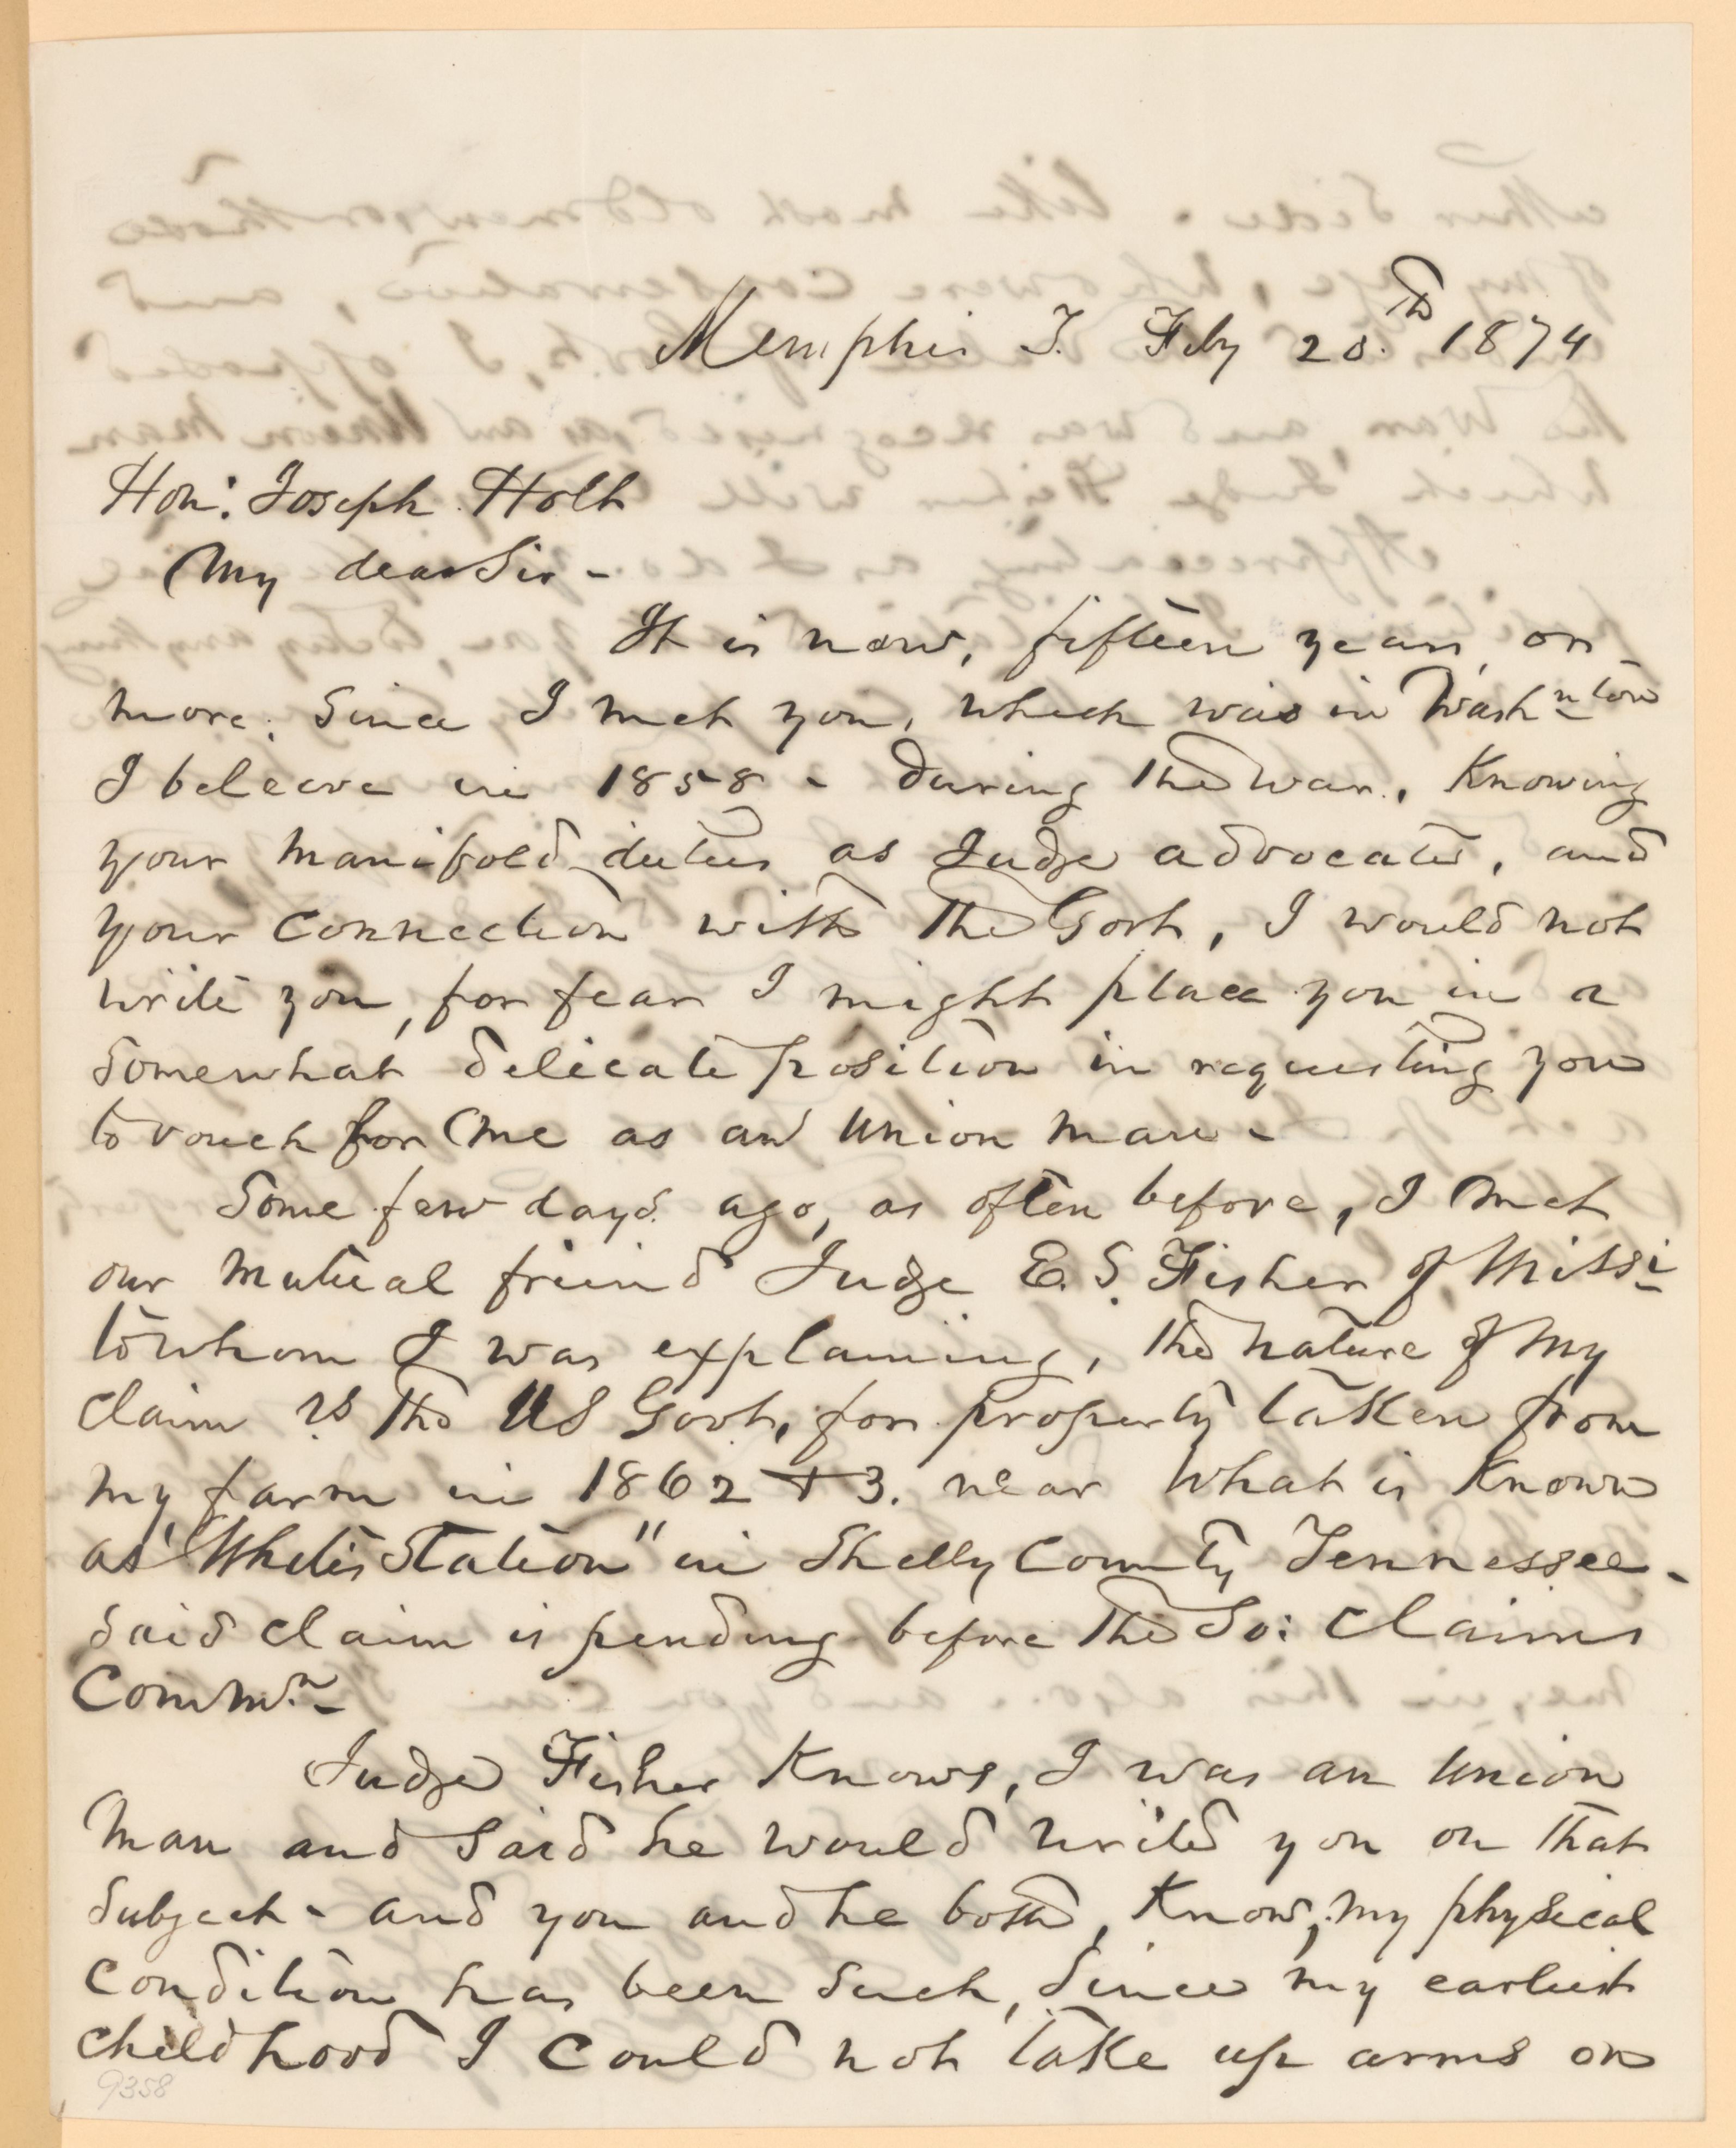 Memphis T. Feby 20.th 1874
Hon: Joseph Holt
My dear Sir -
It is now, fifteen years, or
more. Since I met you, which was in Washnton
I beleave in 1858 - During the War., Knowing
your manifold duties as Judge advocate, and
your connection with the Govt, I would not
write you, for fear I might place you in a
somewhat delicate position in requesting you
to vouch for me as an Union man -
Some few days ago, as often before, I met
our mutual friend Judge E. S. Fisher of Missi
to whom I was explaining, the nature of my
claim vs the US Govt, for property taken from
my farm in 1862 + 3. near what is Known
as "Whites Station" in Shelby County Tennessee -
Said claim is pending before the So: Claims
Commn -
Judge Fisher Knows, I was an Union
man and Said he would write you on that
Subject - and you and he both, Know, my physical
condition has been such, since my earliest
childhood I could not take up arms on
9358